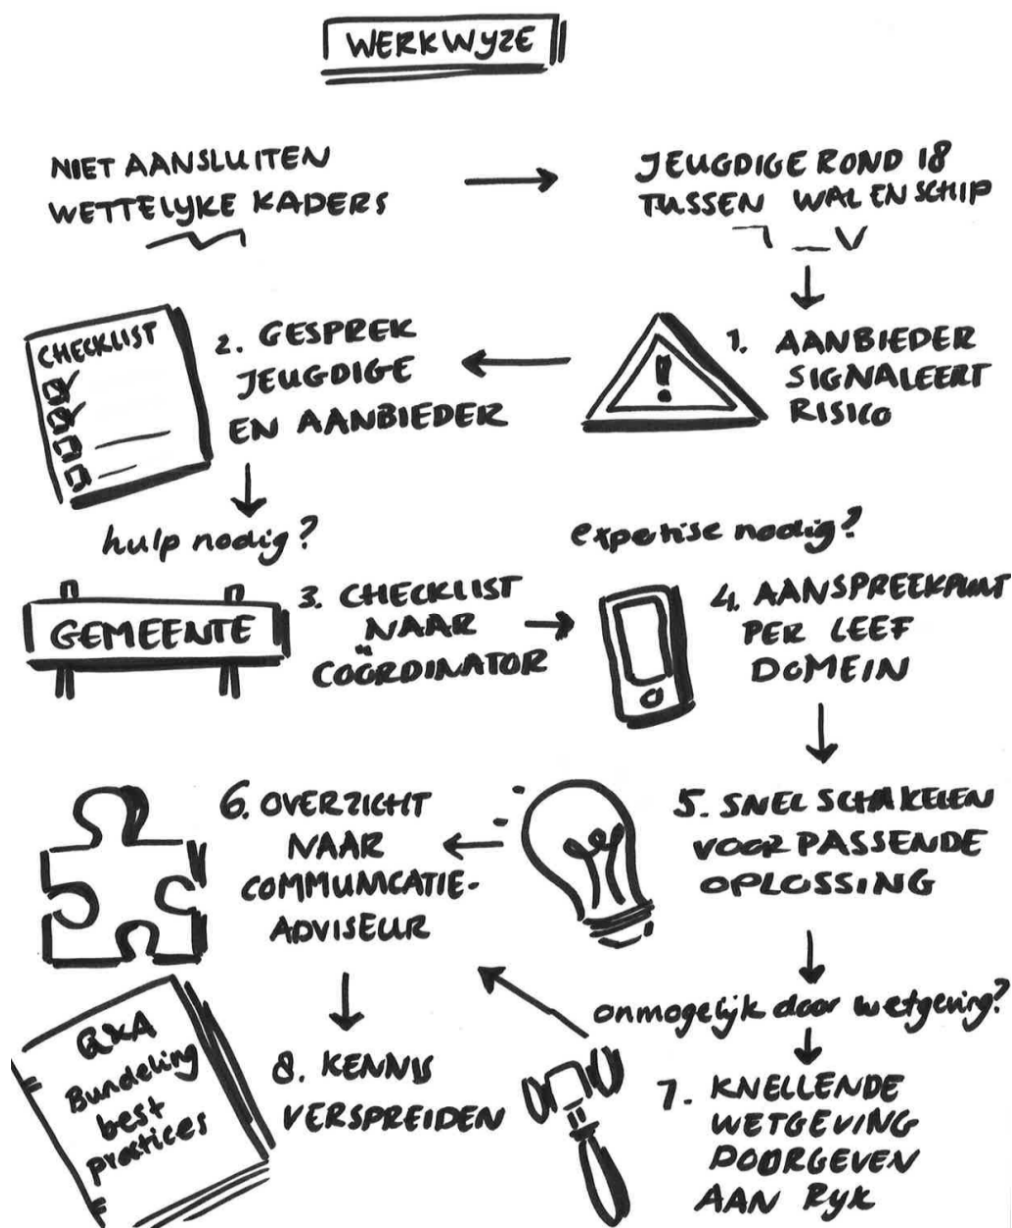 WERKWYZE
NIET AANSLUITEN
WETTELYKE KADERS
JEUGDIGE ROND 18
TUSSEN WAL EN SCHIP
1. AANBIEDER
SIGNALEERT
RISICO
!
CHECKLIST
2. GESPREK
JEUGDIGE
EN AANBIEDER
hulp nodig?
GEMEENTE
3. CHECKLIST
NAAR
COÖRDINATOR
expertise nodig?
4. AANSPREEKPUNT
PER LEEF
DOMEIN
5. SNEL SCHAKELEN
VOOR PASSENDE
OPLOSSING
6. OVERZICHT
NAAR
COMMUNICATIE-
ADVISEUR
onmogelijk door wetgeving?
7. KNELLENDE
WETGEVING
DOORGEVEN
AAN RYK
8. KENNIS
VERSPREIDEN
Q&A
Bundeling
best
practices